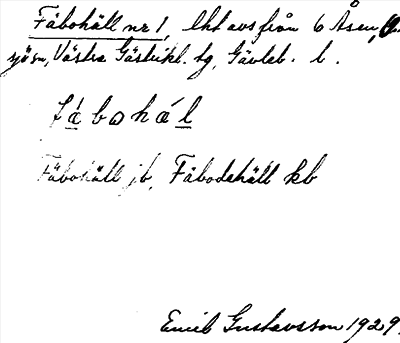 Fäbohäll nr 1, lht avs från 6 Åsen,
sjön, Västra Gästrikl. tg, Gävleb. l.
fábohál
Fäbohäll jb, Fäbodehäll kb
Emil Gustavsson 1929.